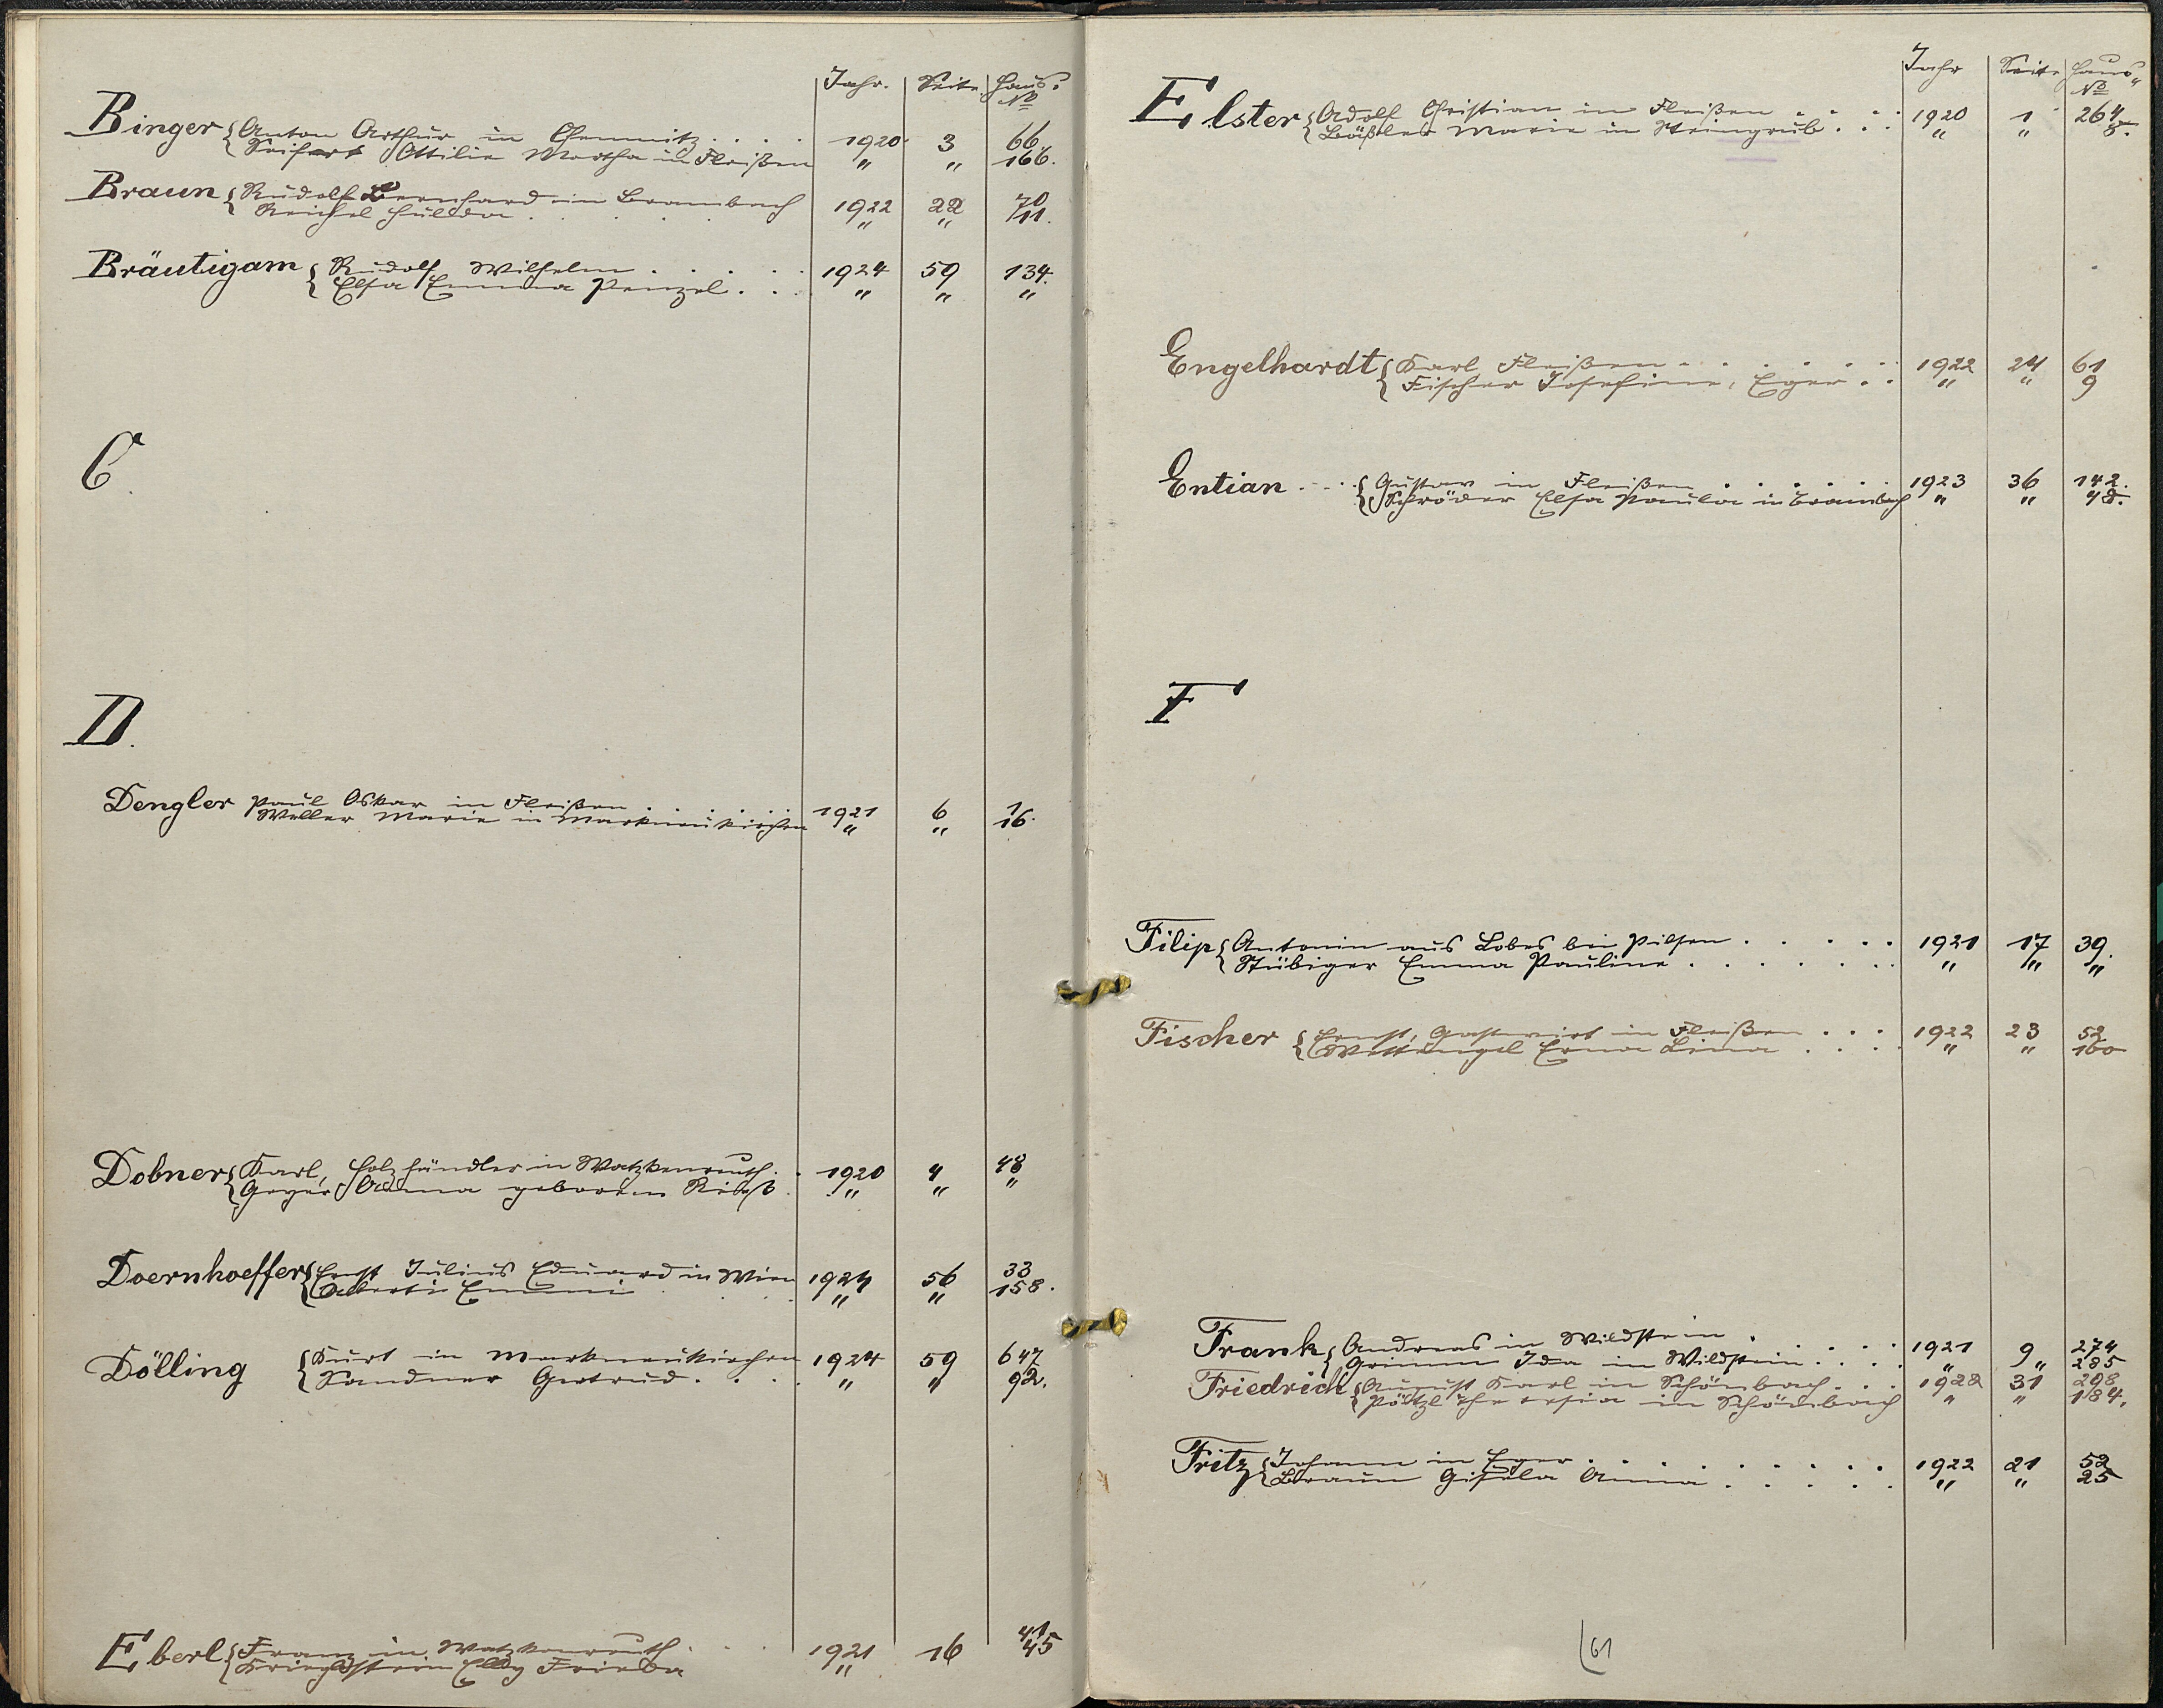 Jahr. Seite Haus No
Binger Anton Arthur in Chemnitz . . . . 1920 3 66.
Seifert Ottilie Martha in Fleißen " " 166.
Braun Rudolf Bernhard in Brambach 1922 22 70
Reichel Hulda . . . . " " 11.
Bräutigam Rudolf Wilhelm . . . . . 1924 59 134.
Elsa Emma Penzel . . . " " "
C.
D.
Dengler Paul Oskar in Fleißen . . . . . 1921 6 1.
Weller Marie in Markneukirchen " " 16
Dobner Karl, Holzhändler in Watzkenreuth . . 1920 4 48
Geyer Anna geborene . " " "
Doernhoeffer Ernst Julius Eduard in Wien 1924 56 33
Emmi . . . " " 158.
Dölling Kurt in Markneukirchen 1924 59 647
Sandner Gertrud . . . . " " 92.
Eberl Franz in Watzkenreuth . . . 1921 16 41
Frieda " 45
Jahr Seite Haus No
Elster Adolf Christian in Fleißen . . . . 1920 1 264
Marie in Steingrub . . . " " 8.
Engelhardt Karl Fleißen . . . . . . 1922 24 61
Fischer Josefine, Eger . . " " 9
Entian . . . . Gustav in Fleißen . . . . . . 1923 36 142.
Schröder Elsa Paula in Brambach " " 48.
F
Filip Antonin aus Lobes bei Pilsen . . . . . 1921 17 39.
Stübiger Emma Pauline . . . . . . . " " "
Fischer Ernst, Gastwirt in Fleißen . . . 1922 23 52
Wettengel Erna Lina . . . . " " 160
Frank Andreas in Wildstein . . . . . 1921 9 274
Grimm Ida in Wildstein . . . . " " 285
Friedrich August Karl in Schönbach . . . 1922 31 298
Pötzl Theresia in Schönbach " " 184.
Fritz Johann in Eger . . . . . . . . . 1922 21 52
Braun Gisela Anna . . . . . " " 25
61